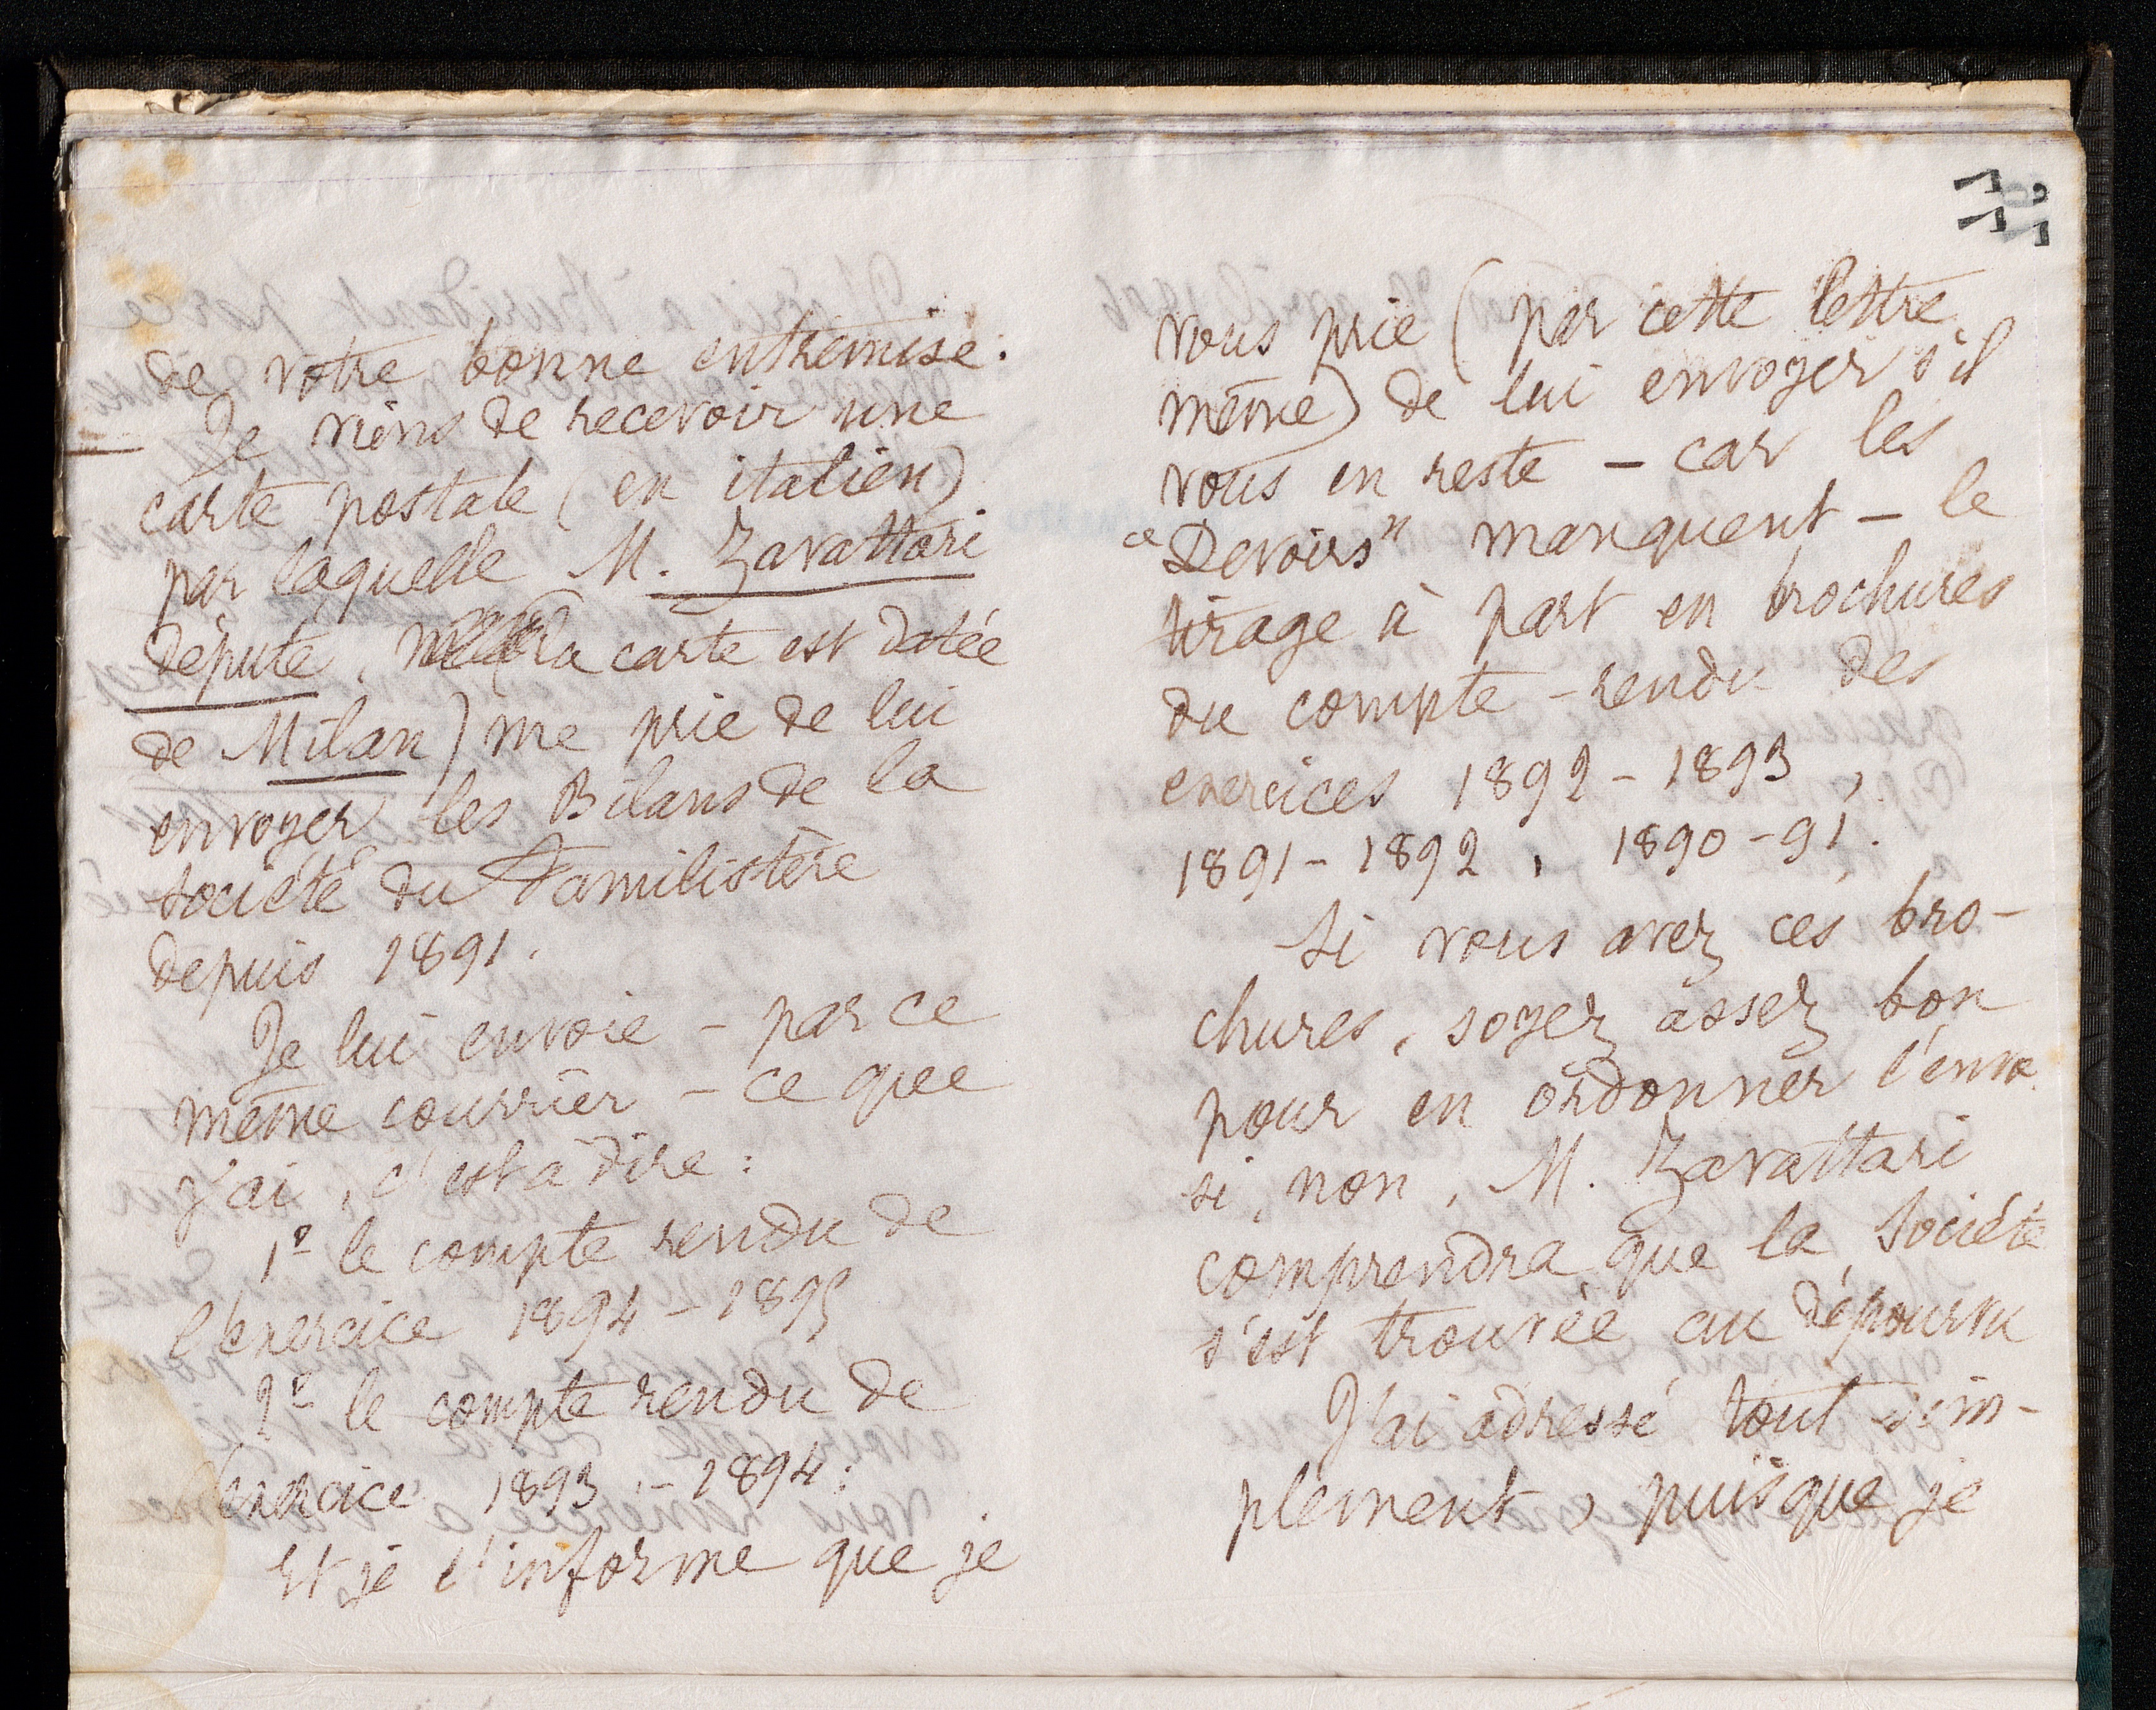 de votre bonne entremise.
Je viens de recevoir une
carte postale (en italien)
par laquelle M. Zavattari
député, (la carte est datée
de Milan) me prie de lui
envoyer les Bilans de la
Société du Familistère
depuis 1891.
Je lui envoie – par ce
même courrier – ce que
j'ai, c'est à dire :
1º le compte rendu de
l'exercice 1894 – 1895
2º le compte rendu de
l'exercice 1893 – 1894 :
Et je l'informe que je
vous prie (par cette lettre
même) de lui envoyer s'il
vous en reste – car les
"Devoirs" manquent – le
tirage à part en brochures
du compte-rendu des
exercices 1892 – 1893,
1891 – 1892, 1890 – 91.
Si vous avez ces bro-
chures, soyez assez bon
pour en ordonner l'envoi
si, non, M. Zavattari
comprendra que la Société
s'est trouvée au dépourvu
J'ai adressé tout sim-
plement, puisque je